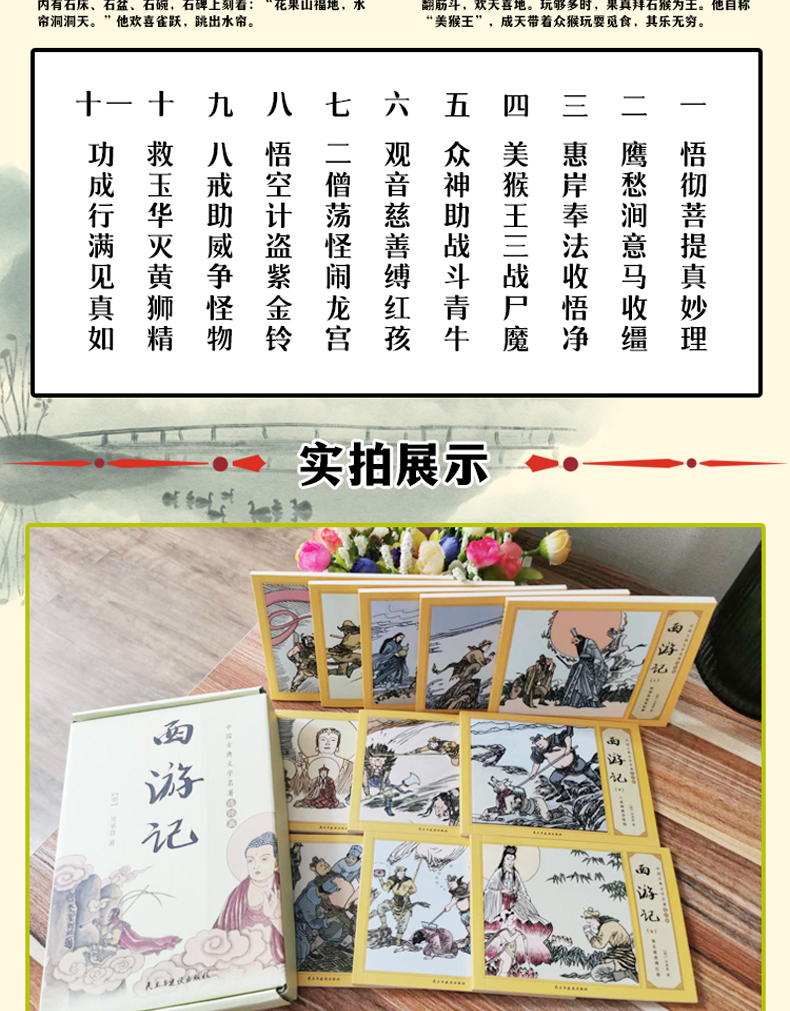 内有石床、石盆、石碗，石碑上刻着：“花果山福地，水
帘洞洞天。”他欢喜雀跃，跳出水帘。
翻筋斗，欢天喜地。玩够多时，果真拜石猴为王。他自称
“美猴王”，成天带着众猴玩耍觅食，其乐无穷。
一 悟彻菩提真妙理
二 鹰愁涧意马收缰
三 惠岸奉法收悟净
四 美猴王三战尸魔
五 众神助战斗青牛
六 观音慈善缚红孩
七 二僧荡怪闹龙宫
八 悟空计盗紫金铃
九 八戒助威争怪物
十 救玉华灭黄狮精
十一 功成行满见真如
实拍展示
西游记
西游记
西游记
西游记
中国古典文学名著连环画
民主与建设出版社